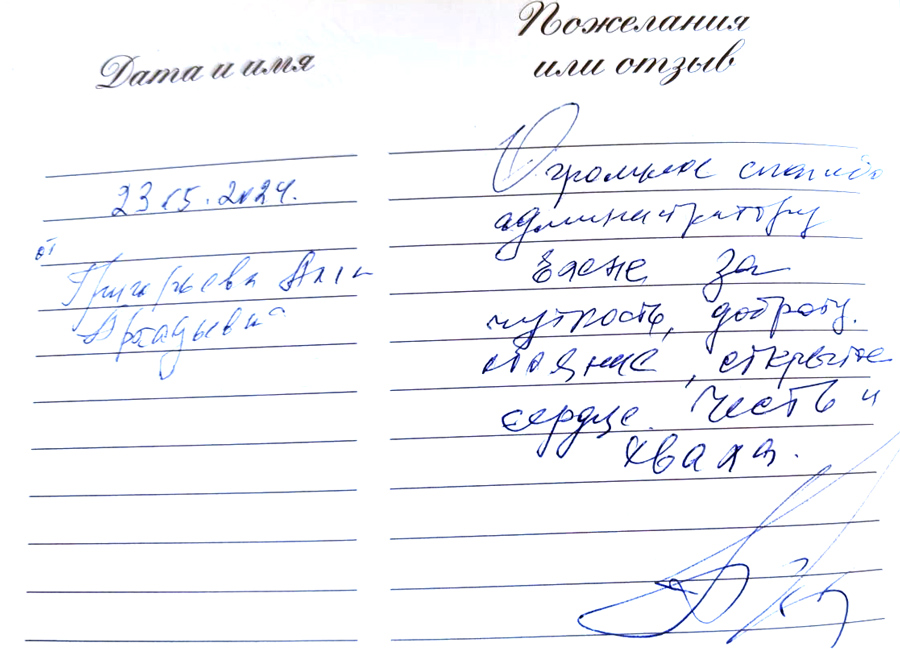 Дата и имя
Пожелания
или отзыв
23.05.2024.
от
Григорьева Алла
Аркадьевна
Огромное спасибо
администратору
Елене за
мудрость, доброту.
стояние, открытое
сердце. Честь и
хвала.